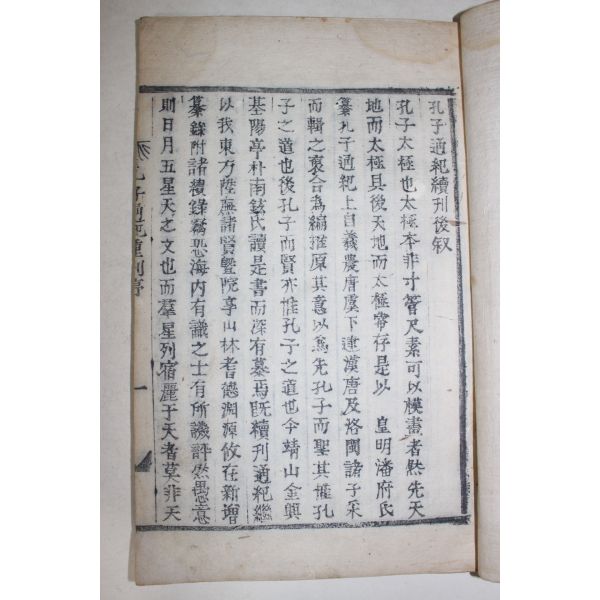 孔子通紀續刊後叙
孔子太極也太極本非寸管尺素可以模畫者然先天
地而太極具後天地而太極常存是以 皇明潘府氏
纂孔子通紀上自羲農唐虞下逮漢唐及洛閩諸子采
而輯之裒合為編推原其意以爲先孔子而聖其惟孔
子之道也後孔子而賢亦惟孔子之道也今靖山金興
基陽亭朴南鉉氏讀是書而深有慕焉旣續刊通紀繼
以我東方陞廡諸賢曁院享山林者德淵源攸在新增
纂錄附諸續錄竊恐海內有識之士有所譏評然愚意
則日月五星天之文也而羣星列宿麗于天者莫非天
孔子通紀重刊序 一